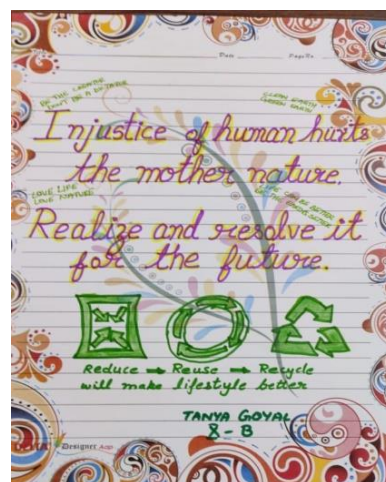 Date
Page No.
BE THE CREATOR
DON'T BE A DICTATOR
CLEAN EARTH
GREEN EARTH
Injustice of human hurts
the mother nature.
LOVE LIFE
LOVE NATURE
BETTER
Realize and resolve it
for the future.
Reduce → Reuse → Recycle
will make lifestyle better
TANYA GOYAL
8 - B
Designer